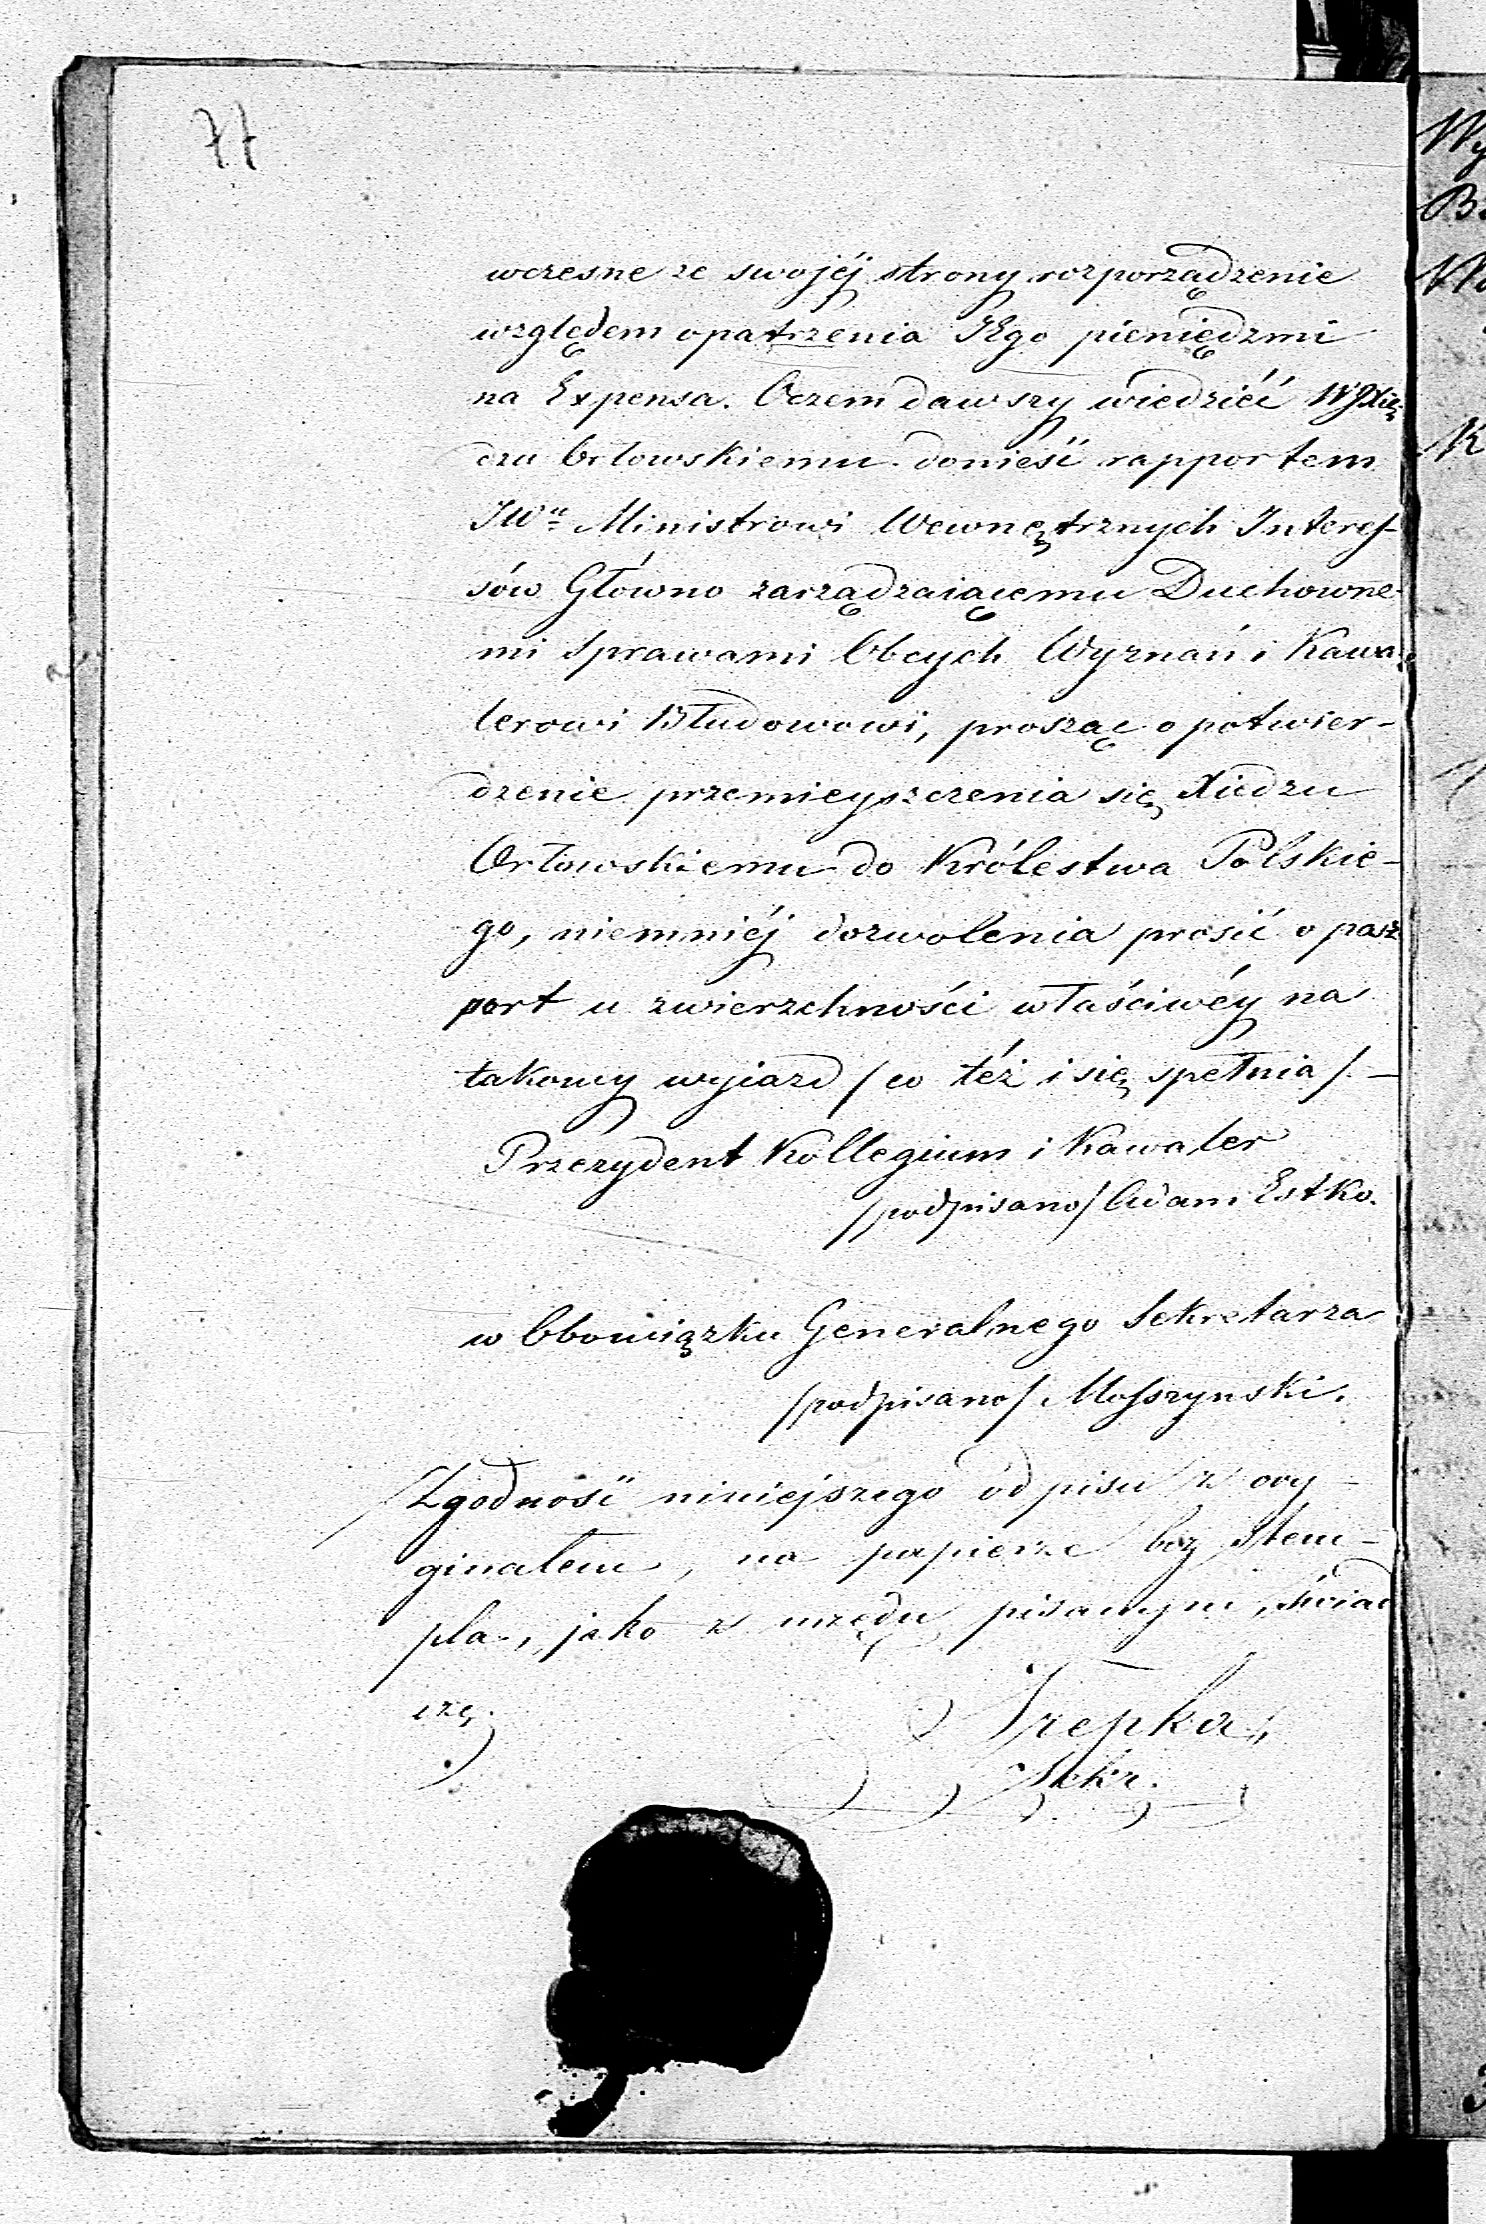 77
wczesne ze swojéj strony rozporządzenie
względem opatrzenia JEgo pieniędzmi
na Expensa. Oczem dawszy wiedziéć WJXię
dzu Orłowskiemu donieść rapportem
JWu Ministrowi Wewnętrznych Interes-
sów Główno zarządzaiącemu Duchowne-
mi Sprawami Obcych Wyznań i Kawa
lerowi Błudowowi, prosząc o potwier-
dzenie przemieyszczenia się Xiedzu
Orłowskiemu do Królestwa Polskie-
go, niemniéj dozwolenia prosić o pasz
port u zwierzchności właściwéy na
takowy wyiazd /co téż i się spełnia/.-
Prezydent Kollegium i Kawaler
/podpisano/ Adam Estko.
w Obowiązku Generalnego Sekretarza
/podpisano/ Moszynski.
Zgodność niniejszego odpisu z ory-
ginałem, na papierze bez stem-
pla, jako z urzędu pisanym, świad
czę.
Trepka,
Sekr.